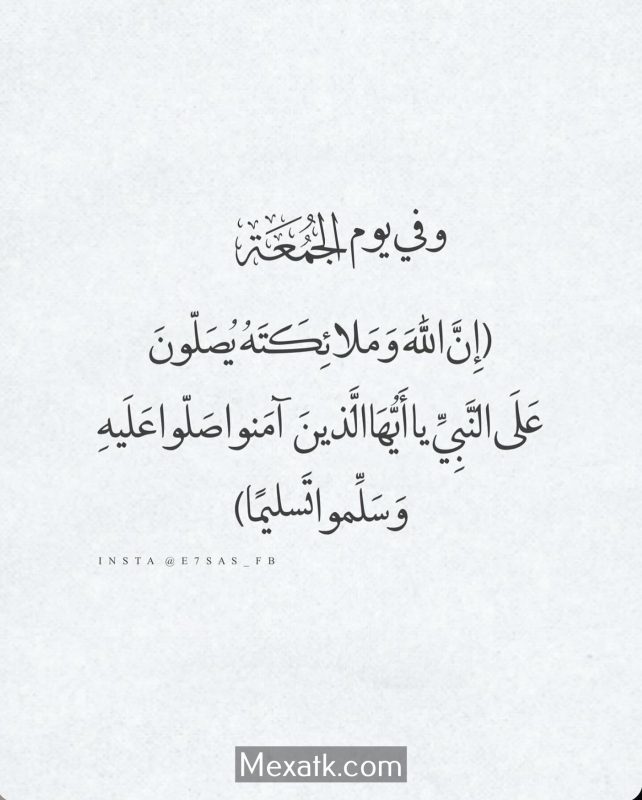 وفي يوم الجُمُعَة
(إِنَّ اللَّهَ وَمَلائِكَتَهُ يُصَلّونَ
عَلَى النَّبِيِّ يا أَيُّهَا الَّذينَ آمَنوا صَلّوا عَلَيهِ
وَسَلِّموا تَسليمًا)
INSTA @E7SAS_FB
Mexatk.com